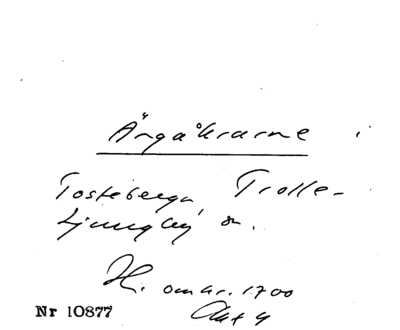 Ängåkrarne
Tosteberga, Trolle-
Ljungby sn.
H. omkr. 1700
Akt 4
Nr 10877